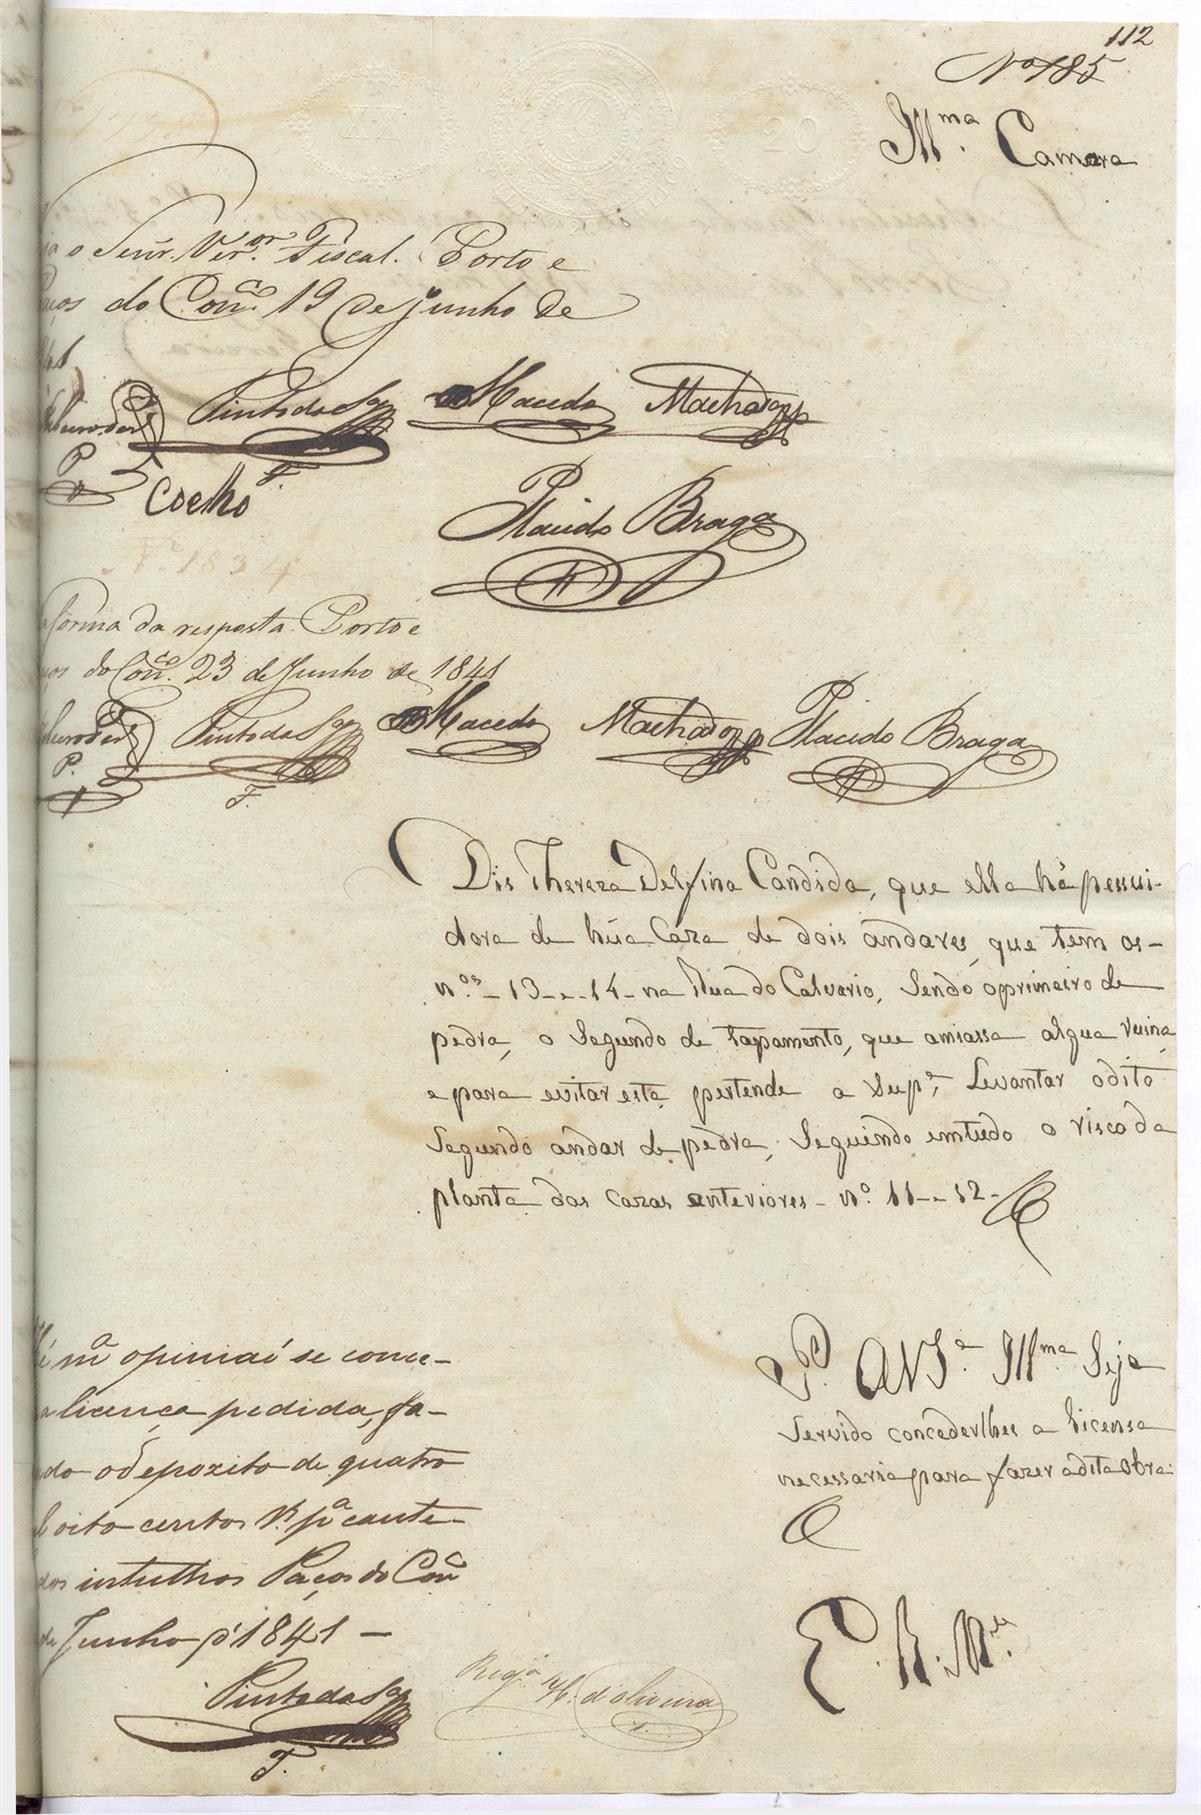 112
Nº 185
Illma. Camara
XX
20
o Senr. Veror. Fiscal. Porto e
do Conco. 19 de Junho de
Pinto da Sa Macedo Machado
P.
F.
Coelho
Placido Braga
Nº 1834
forma da resposta. Porto e
do Conco. 23 de Junho de 1841
Pinto da Sa Macedo Machado Placido Braga
P.
F.
Dis Thereza Delfina Candida, que ella hé pessui-
dora de húa Caza de dois andares, que tem os-
nos. - 13 - e - 14 - na Rua do Calvario, Sendo o primeiro de
pedra, o Segundo de tapamento, que amiassa algua ruina,
e para evitar esta, pertende a Supe. Levantar o dito
Segundo andar de pedra, Seguindo emtudo o risco da
planta das cazas anteriores - nº. 11 - e 12 -
P. A V Sa. Illma Seja
Servido concederlhes a licensa
necessaria para fazer a dita obra.
E. R. Mce.
ma opiniaí se conce-
a licença pedida, fa-
o depozito de quatro
oito centos rs. pa caute-
dos intulhos Paços do Conco
de Junho d'1841 -
Pinto da Sa
F.
Rega
H. d'oliveira